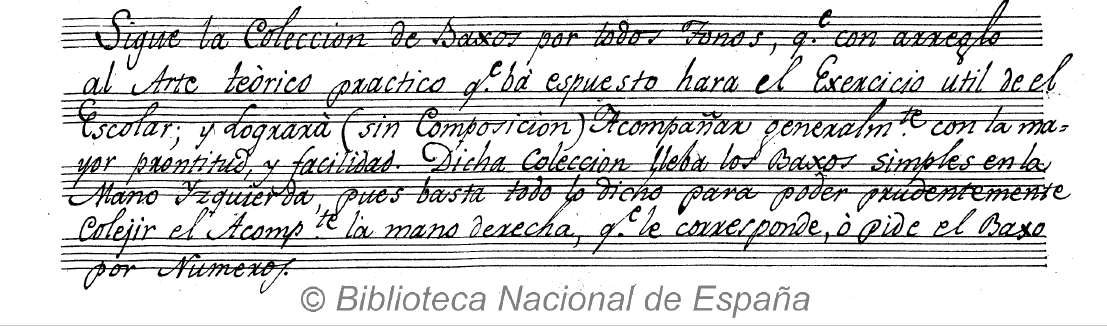 Sigue la Coleccion de Baxos por todos Tonos, q.e con arreglo
al Arte teòrico practico q.e bà espuesto hara el Exercicio util de el
Escolar; y Lograrà (sin Composicion) Acompañar generalm.te con la ma=
yor prontitud, y facilidad. Dicha Coleccion lleba los Baxos simples en la
Mano Yzquierda, pues basta todo lo dicho para poder prudentemente
Colejir el Acomp.te la mano derecha, q.e le corresponde, ò pide el Baxo
por Numeros.
© Biblioteca Nacional de España